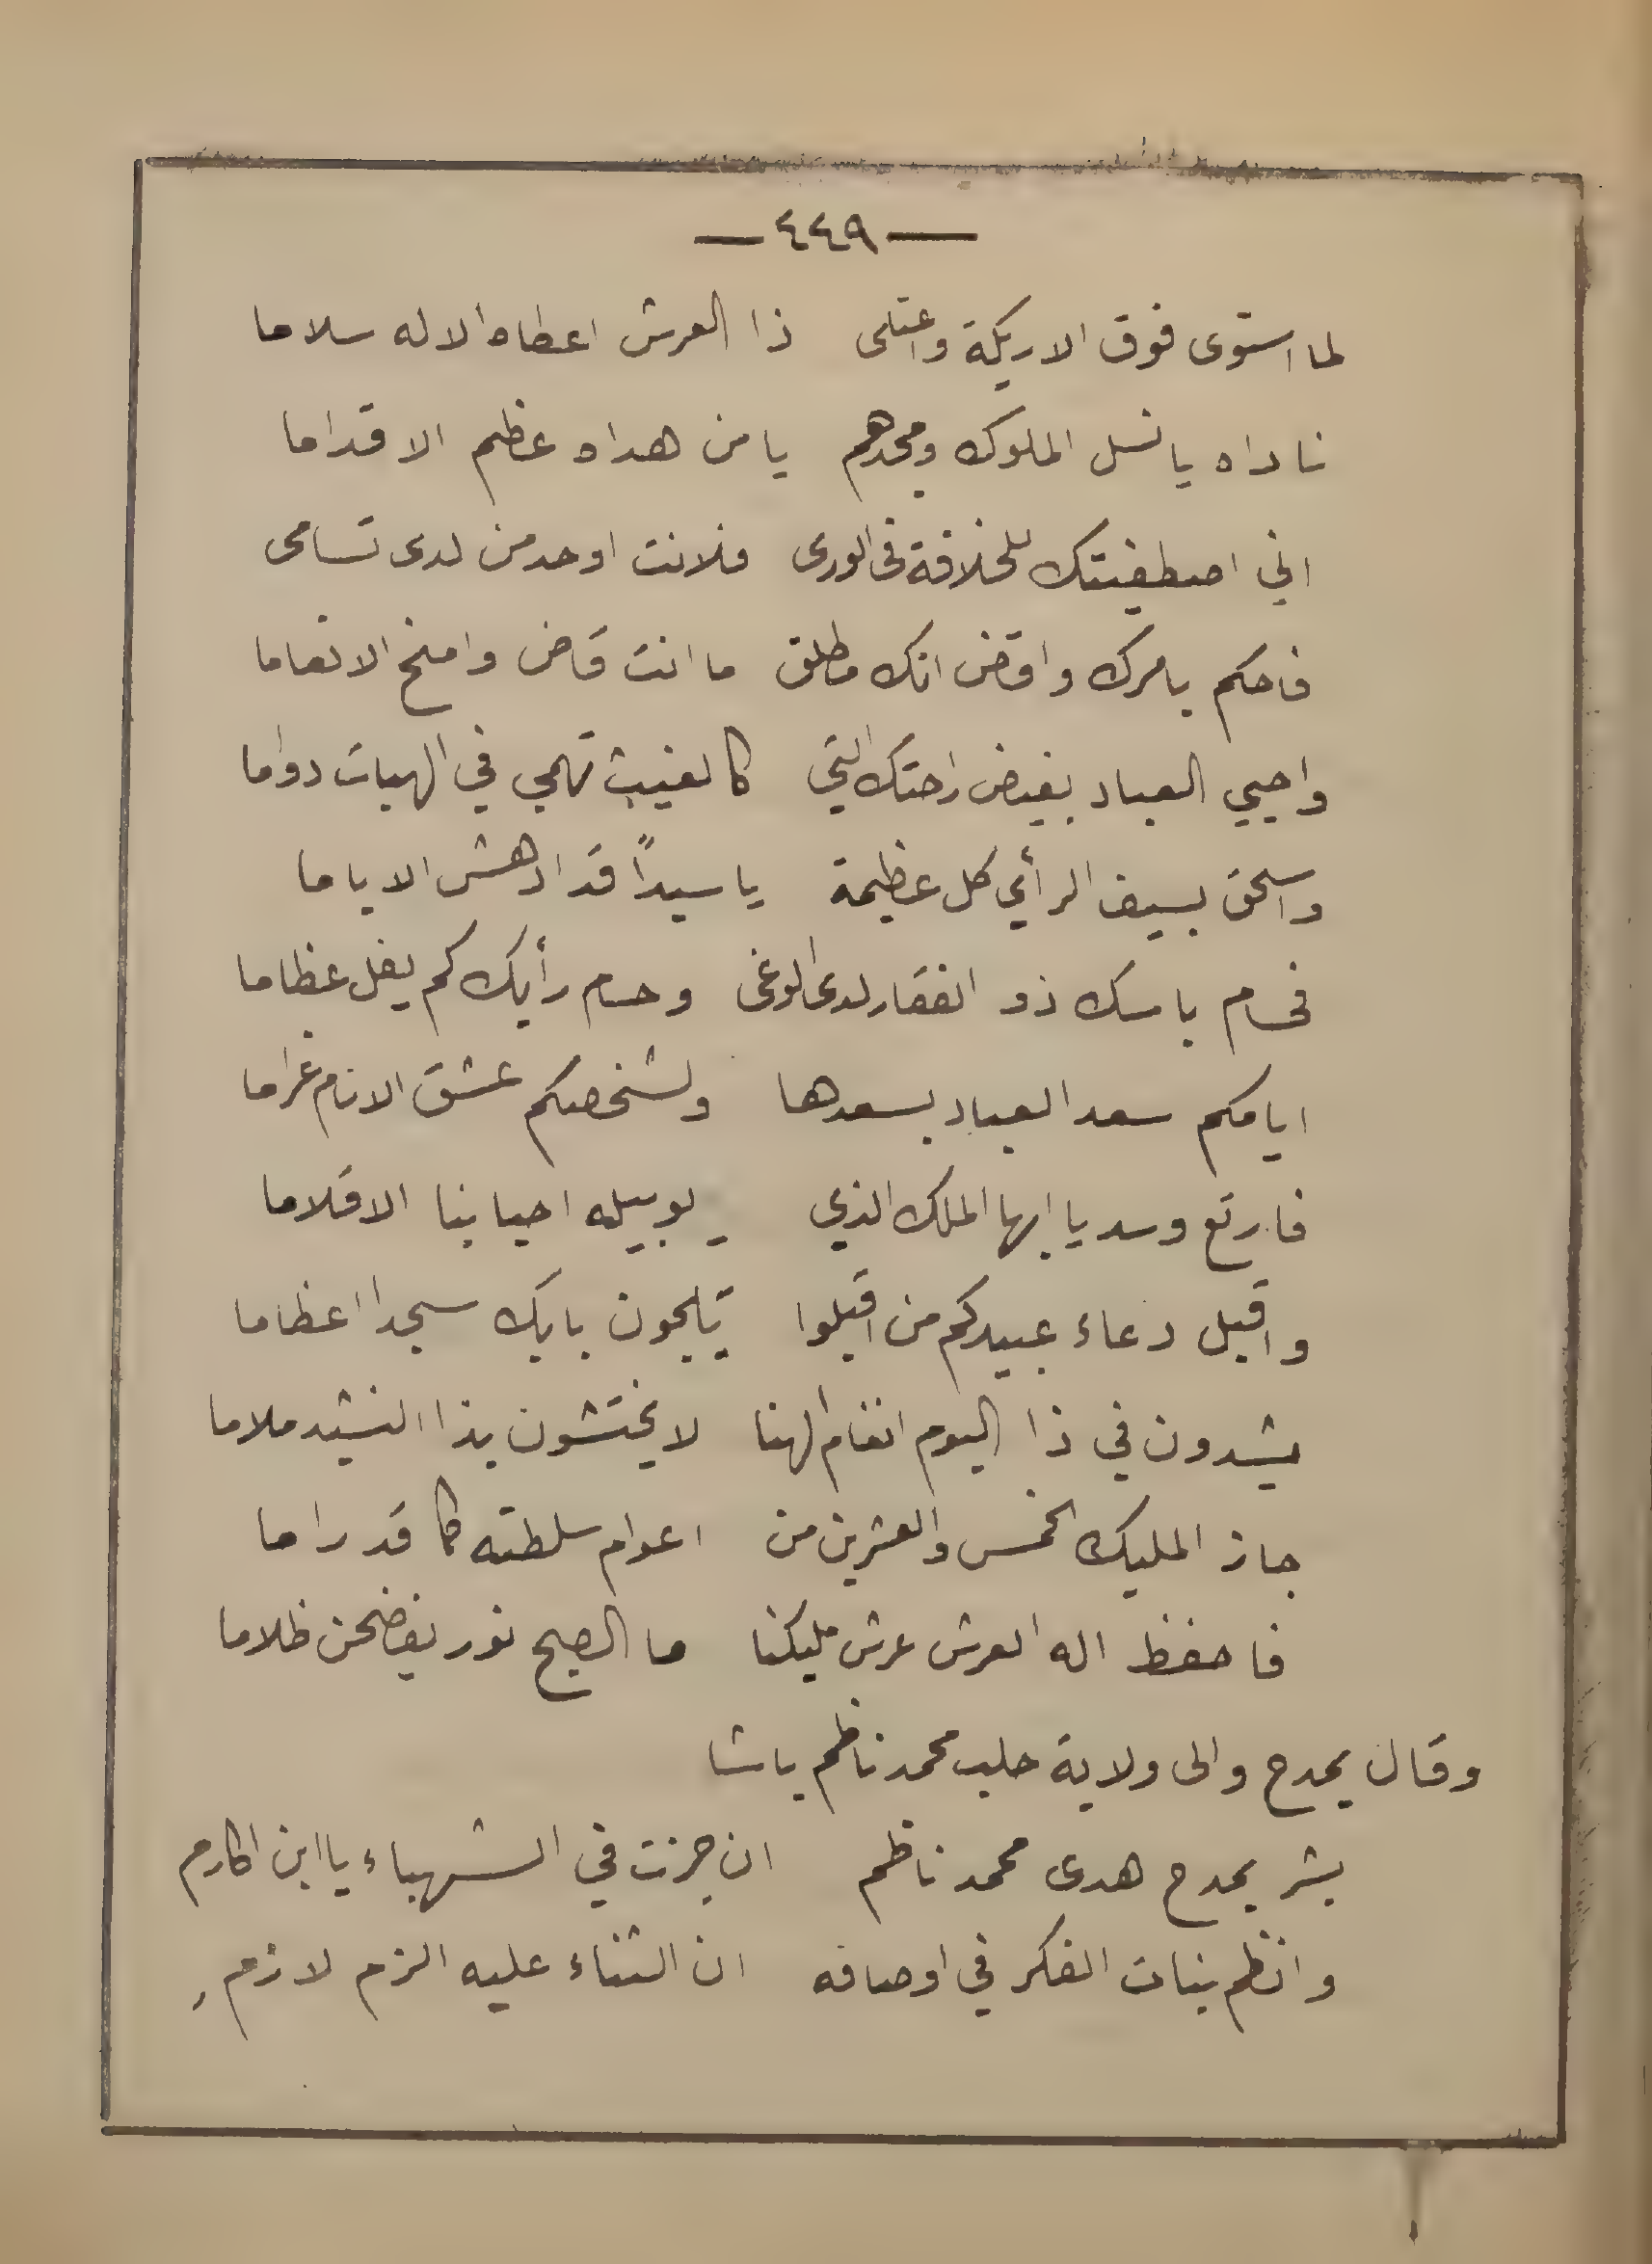 — ٤٤٩ —
لما استوى فوق الاريكة واعتلى ذا العرش اعطاه الاله سلاما
ناداه يا نسل الملوك ومجدهم يا من هداه عظم الاقداما
اني اصطفيتك للخلافة في الورى فلانت اوحد من لدى تسامى
فاحكم بامرك واقض انك مطلق ما انت قاض وامنح الانعاما
واحيي العباد بفيض راحتك التي كالغيث تهمي في الهبات دواما
واسحق بسيف الرأي كل عظيمة يا سيداً قد ادهش الاياما
فحسام باسك ذو الفقار لدى الوغى وحسام رأيك كم يفل عظاما
ايامكم سعد العباد بسعدها ولشخصكم عشق الانام غراما
فارتع وسد يا ايها الملك الذي يوبيله احيا بنا الاقلاما
واقبل دعاء عبيدكم من اقبلوا يلجون بابك سجدا اعظاما
يشدون في ذا اليوم انغام الهنا لا يختشون بذا النشيد ملاما
جاز المليك الخمس والعشرين من اعوام سلطته كما قد راما
فاحفظ اله العرش عرش مليكنا ما الصبح نور يفضحن ظلاما
وقال يمدح والى ولاية حلب محمد ناظم باشا
بشر بمدح هدى محمد ناظم ان جزت في الشهباء يا ابن اكارم
وانظم بنات الفكر في اوصافه ان الثناء عليه الزم لازم